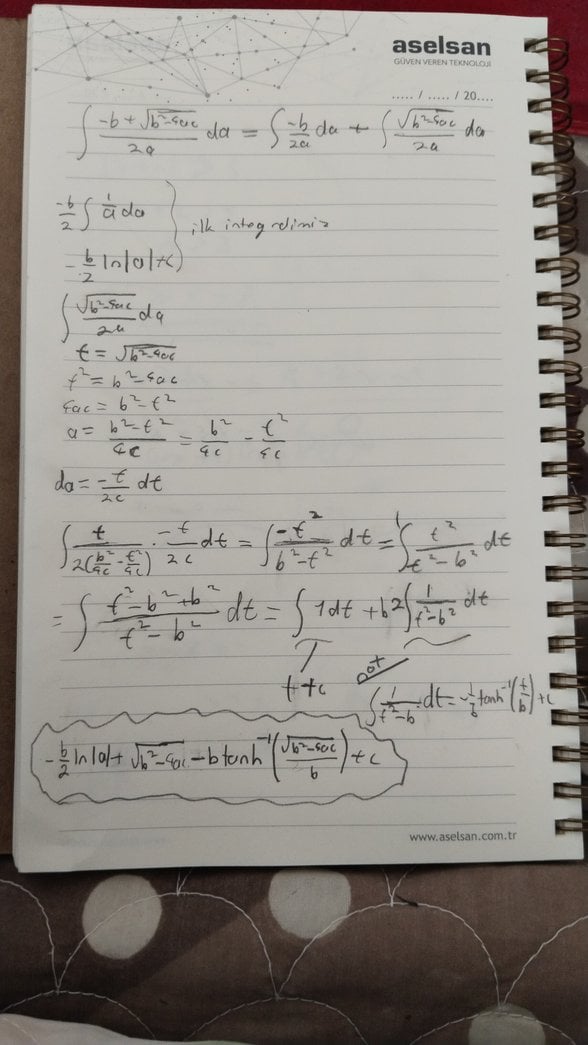 aselsan
GÜVEN VEREN TEKNOLOJİ
..... / ..... / 20....
∫ (-b + √(b²-4ac))/(2a) da = ∫ (-b)/(2a) da + ∫ √(b²-4ac)/(2a) da
-b/2 ∫ 1/a da
ilk integralimiz
-b/2 ln|a|+c
∫ √(b²-4ac)/(2a) da
t = √(b²-4ac)
t² = b²-4ac
4ac = b²-t²
a = (b²-t²)/(4c) = b²/(4c) - t²/(4c)
da = -t/(2c) dt
∫ t/(2(b²/(4c) - t²/(4c))) · -t/(2c) dt = ∫ -t²/(b²-t²) dt = ∫ t²/(t²-b²) dt
= ∫ (t²-b²+b²)/(t²-b²) dt = ∫ 1dt + b² ∫ 1/(t²-b²) dt
t+c
not
∫ 1/(t²-b) dt = -1/b tanh⁻¹(t/b)+c
-b/2 ln|a| + √(b²-4ac) - b tanh⁻¹(√(b²-4ac)/b) + c
www.aselsan.com.tr